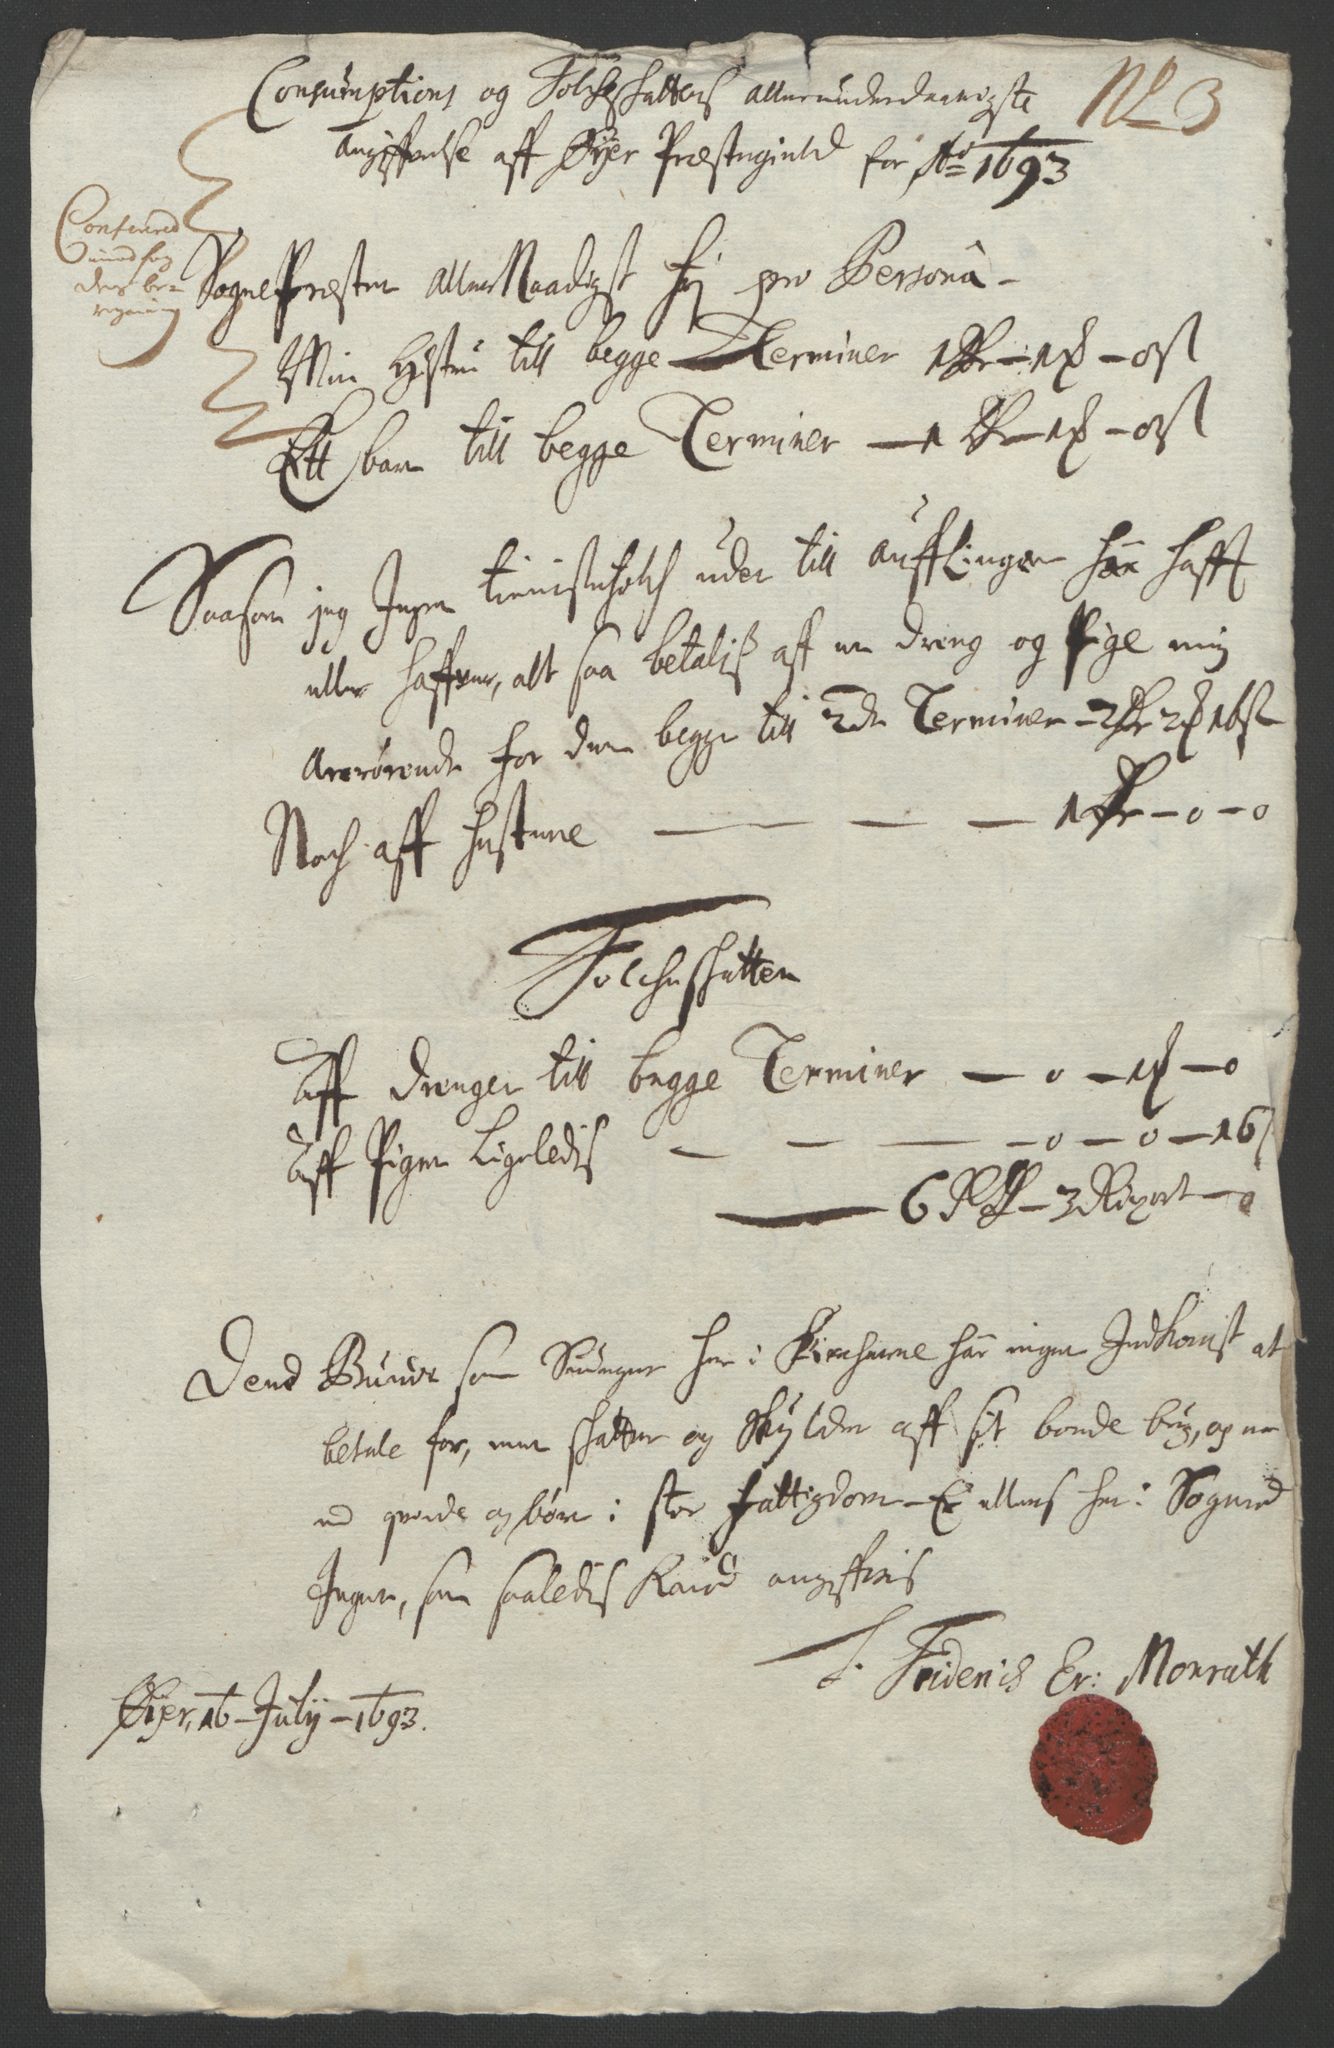 No 3
Consumptions og Folcheskattens allerunderdanigste
Angiffvelse aff Øyer Præstegield for Ao 1693
Confererid
med hoy
SognePræsten AllerNaadigst frj pro Persona -
Min Hustru till begge Terminer 1 Rdr - 1 ℔ - 0 sl
Ett barn till begge Terminer - 1 Rdr - 1 ℔ - 0 sl
Saasom jeg Ingen tienistefolch uden till auffLingen har hafft
eller haffver, alt saa betalis aff en dreng og Pige mig
Anrørende for dem begge till 2de Terminer - 2 Rdr 2 ℔ 16 sl
Noch aff hustrue - - - - 1 Rdr - 0 - 0
Folcheskatten
Aff drenger till begge Terminer - 0 - 1 ℔ - 0
Aff Piger Ligeledis - - - 0 - 0 - 16 sl
6 Rd - 3 Rixort - 0
Dend Bunde som Siunger her i Kircherne har ingen Indkomst at
betale for, men skatter og Skylder aff sit bonde brug, og er
med qvinde og børn i stor fattigdom - Er ellers her i Sognet
Ingen, som saaledis Kand angiffvis
Friderich Er: Monrath
Øyer, 16 - July - 1693.